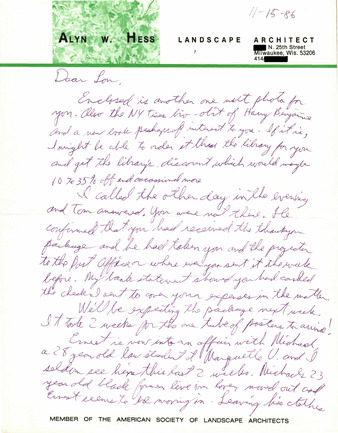 11-15-86
ALYN W. HESS
LANDSCAPE ARCHITECT
N. 25th Street
Milwaukee, Wis. 53206
414
Dear Lon,
Enclosed is another one nite photo for
you. Also the NY Times bio-obit of Harry Benjamin
and a new book perhaps of interest to you. If it is,
I might be able to order it thru the library for you
and get the library's discount which would maybe
10 to 35% off and occasional more
I called the other day in the evening
and Tom answered. You were not there. He
confirmed that you had received the
package and he had taken you and the projector
to the Post Office where you sent it the week
before. My bank statement showed you had cashed
the check I sent to cover your expenses in the matter.
We'll be expecting the package next week.
It took 2 weeks for the one tube of posters to arrive!
Ernest is now into an affair with Michael,
a 28 year old law student at Marquette U. and I
seldom see him this last 2 weeks. Michael's 23
year old black former live in lover moved out and
Ernest seems to be moving in. Leaving his clothes
MEMBER OF THE AMERICAN SOCIETY OF LANDSCAPE ARCHITECTS